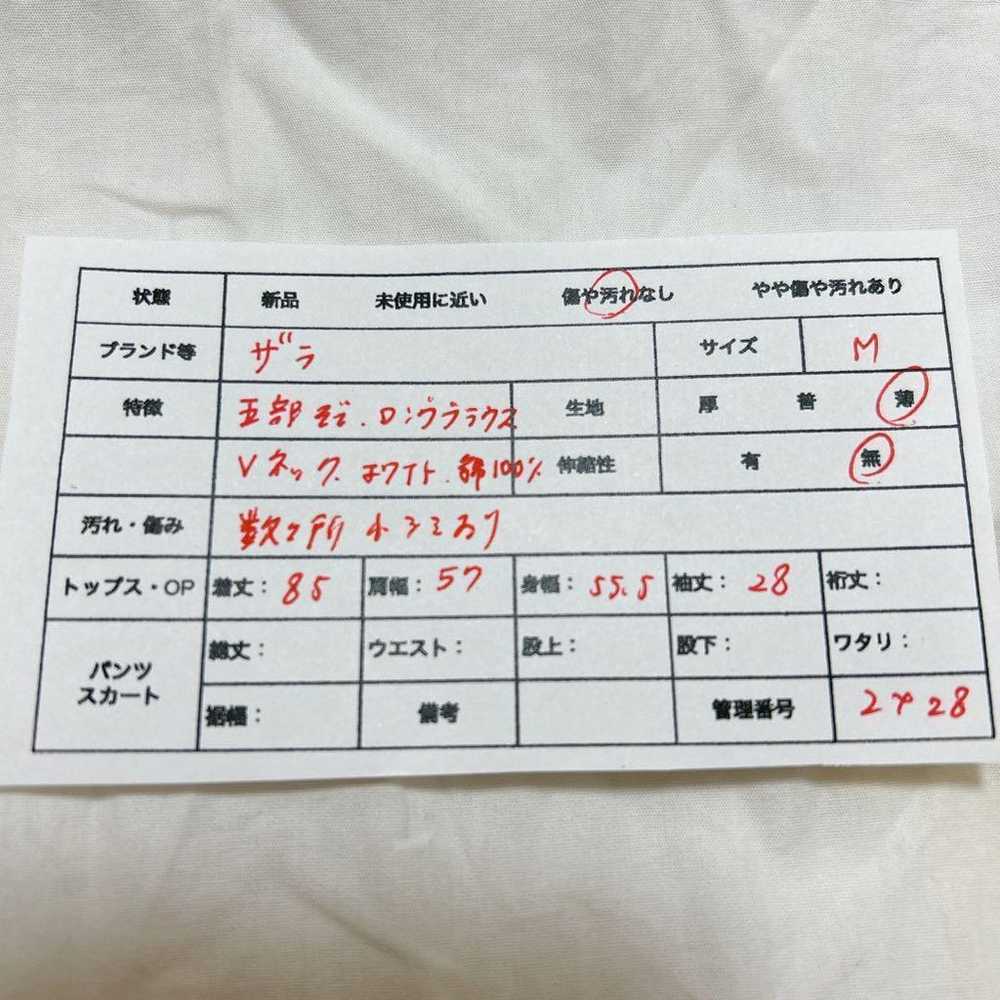 状態 新品 未使用に近い 傷や汚れなし やや傷や汚れあり
ブランド等 ザラ サイズ M
特徴 五部そで.ロングブラウス 生地 厚 普 薄
Vネック.ホワイト.綿100% 伸縮性 有 無
汚れ・傷み 数ヶ所 小シミあり
トップス・OP 着丈：85 肩幅：57 身幅：55.5 袖丈：28 裄丈：
パンツ スカート 総丈： ウエスト： 股上： 股下： ワタリ：
裾幅： 備考 管理番号